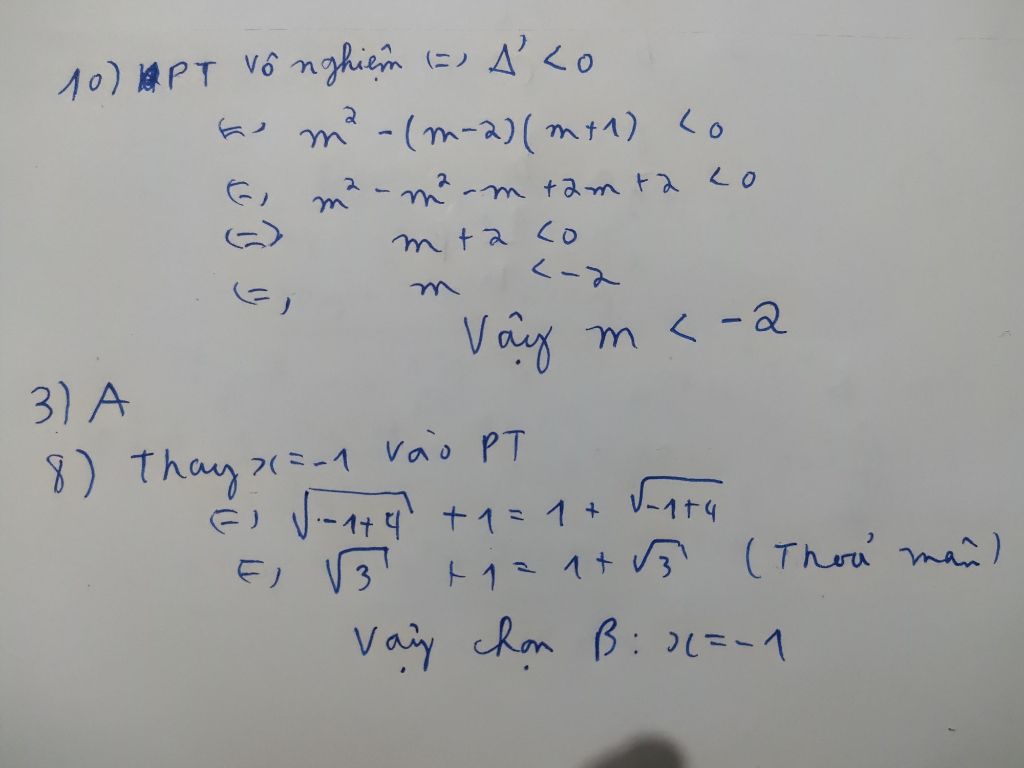 10) PT vô nghiệm <=> Δ' < 0
<=> m² - (m-2)(m+1) < 0
<=> m² - m² - m + 2m + 2 < 0
<=> m + 2 < 0
<=> m < -2
Vậy m < -2
3) A
8) Thay x = -1 vào PT
<=> √-1+4 + 1 = 1 + √-1+4
<=> √3 + 1 = 1 + √3 (Thoả mãn)
Vậy chọn B: x = -1